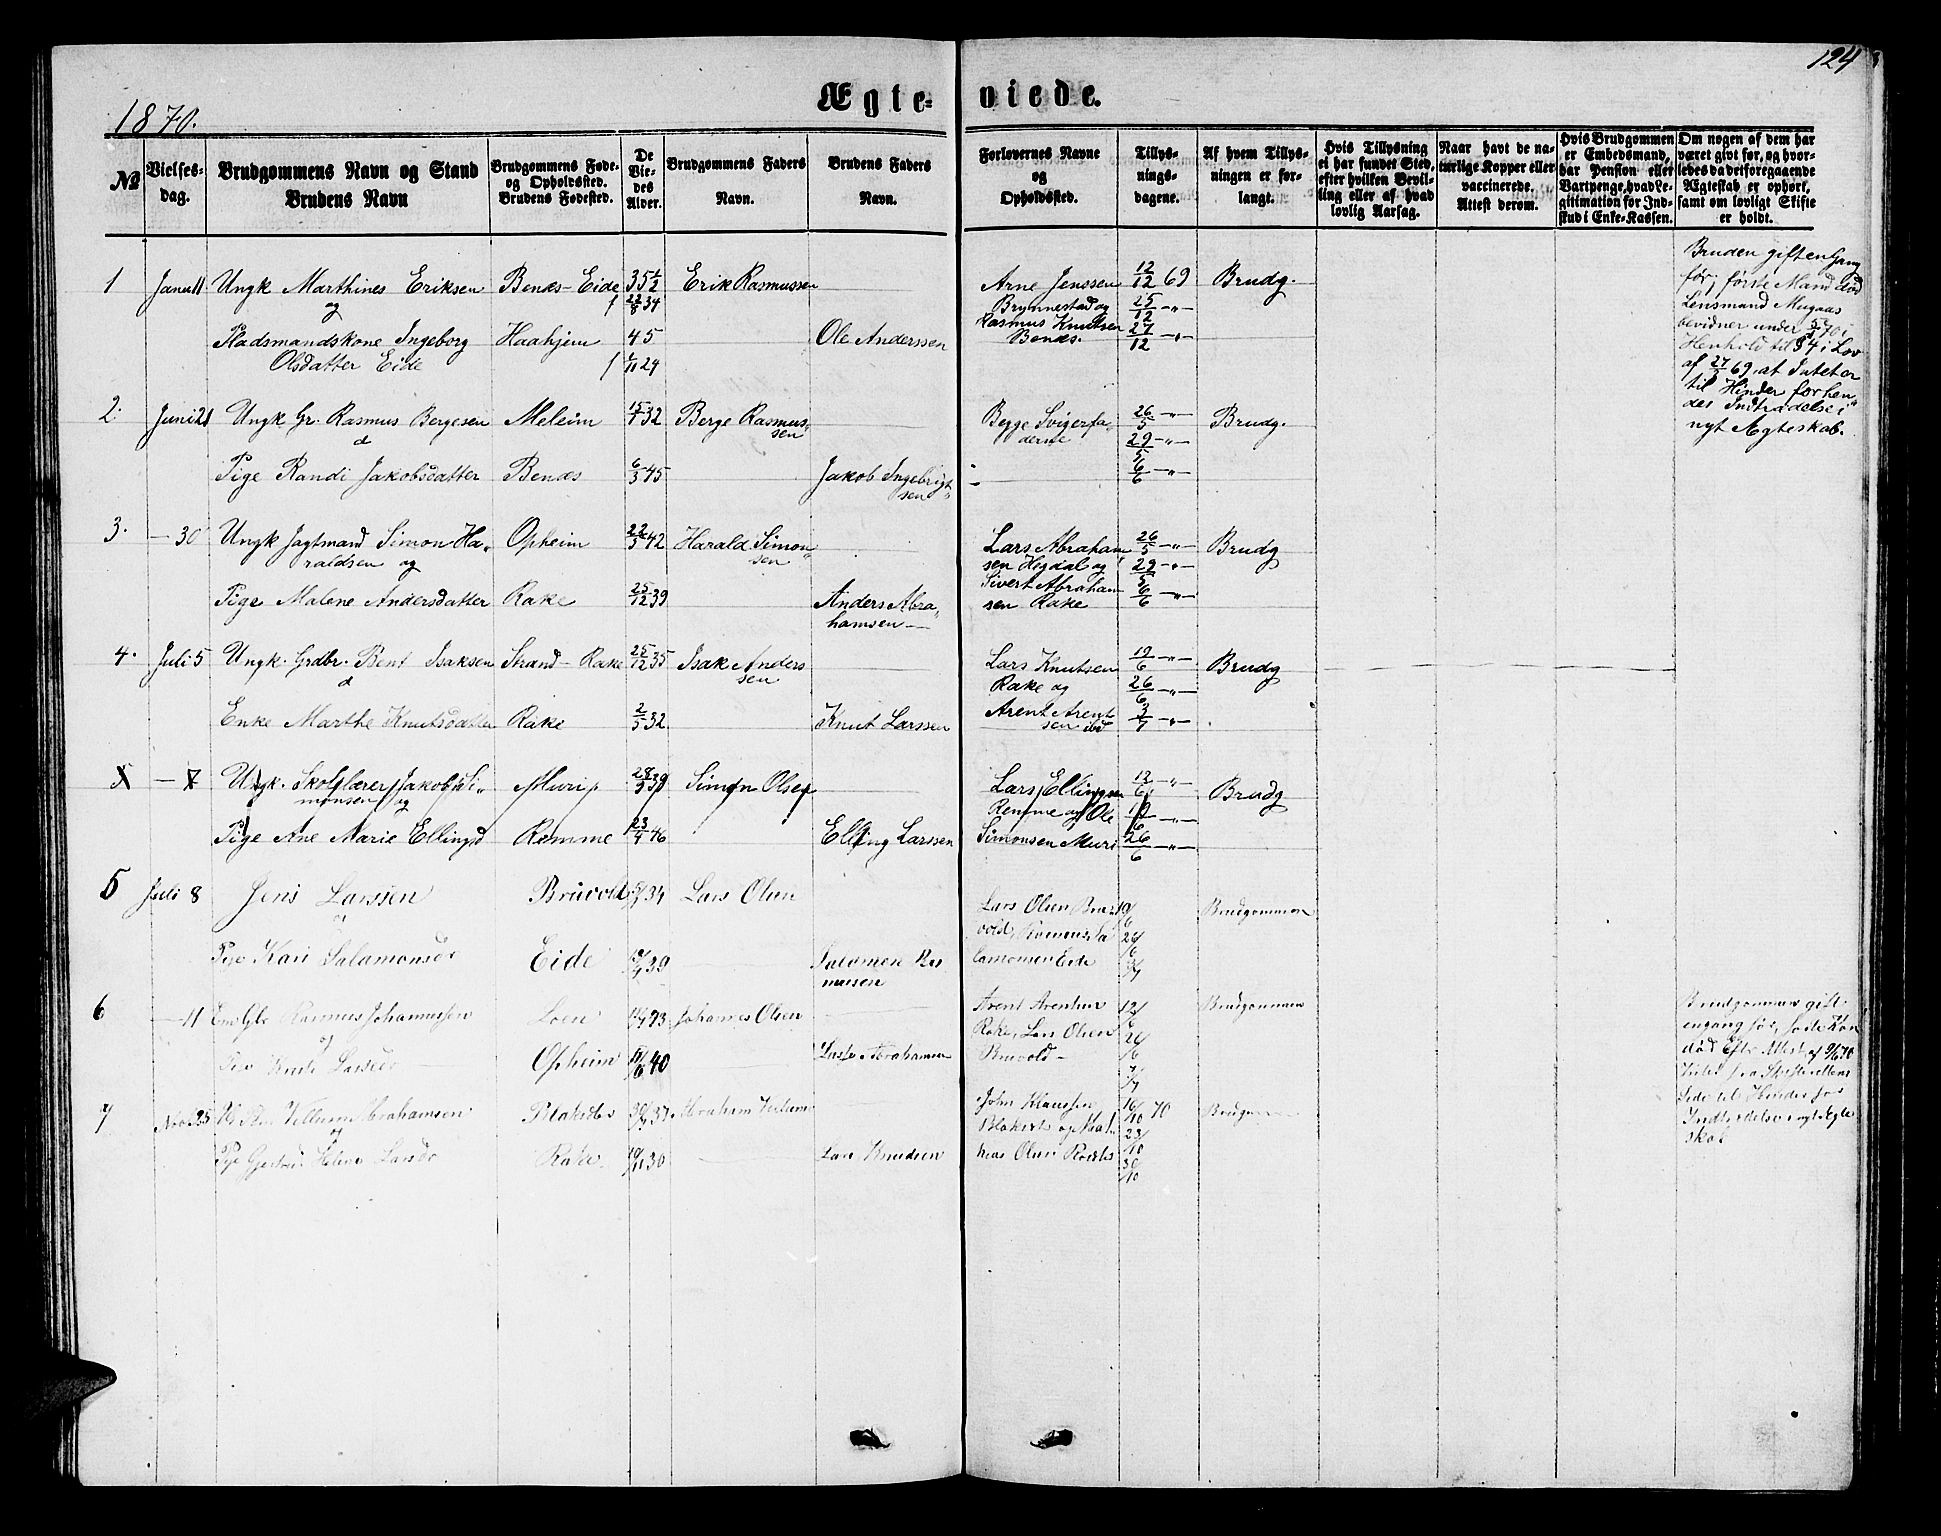 124
1870.
Ægteviede.
№
Vielsesdag.
Brudgommens Navn og Stand
Brudens Navn
Brudgommens Føde- og Opholdssted.
Brudens Fødested.
De Viedes Alder.
Brudgommens Faders Navn.
Brudens Faders Navn.
Forlovernes Navne og Opholdssted.
Tillysningsdagene.
Af hvem Tillysningen er forlangt.
Hvis Tillysning ei har fundet Sted, efter hvilken Bevilling eller af hvad lovlig Aarsag.
Naar havt de naturlige Kopper eller vaccinerede. Attest derom.
Hvis Brudgommen er Embedsmand, har Pension eller Vartpenge, hvad Legitimation for Indskud i Enke-Kassen.
Om nogen af dem har været gift før, og hvorledes da det foregaaende Ægteskab er ophørt, samt om lovligt Skifte er holdt.
1 Janu 11 Ungk Marthines Eriksen Benæs-Eide 35½ Erik Rasmussen
og f 22/8 34
Pladsmandskone Ingeborg Haahjem 45 Ole Anderssen
Olsdatter Eide f 1/11 24
Arne Jenssen 12/12 69 Brudg.
Brynnestad og 25/12 -"-
Rasmus Knutsen 27/12 -"-
Benæs.
Bruden gift en Gang
før; første Mand død
Lensmand Mugaas
bevidner under 70 i
Henhold til § 4 i Lov
af 69, at Intet er
til Hinder for hen
des Indtrædelse i
nyt Ægteskab.
2. Juni 21 Ungk Gr. Rasmus Bergesen Meleim 15/7 32 Berge Rasmussen
Pige Randi Jakobsdatter Benæs 6/3 45 Jakob Ingebrigtsen
Begge Svigerfa- 26/5 -"- Brudg.
derne 29/5 -"-
6/6 -"-
3. - 30 Ungk Jagtmand Simon Ha- Opheim 22/3 42 Harald Simonsen
raldsen og
Pige Malene Andersdatter Rake 25/12 39 Anders Abrahamsen
Lars Abraham 26/5 -"- Brudg
sen Hegdal og 29/5 -"-
Sivert Abraham 6/6 -"-
sen Rake
4. Juli 5 Ungk. Grdbr. Bent Isaksen Strand-Rake 25/12 35 Isak Anderssen
Enke Marthe Knutsdatter Rake 2/5 32 Knut Larssen
Lars Knutsen 19/6 -"- Brudg
Rake og 26/6 -"-
Arent Arent 3/7 -"-
sen ibd
5 - 7 Ungk. Skolelærer Jakob Si- Muri 28/3 39 Simon Olsen
monsen og
Pige Ane Marie Ellingsd Remme 23/4 46 Elling Larssen
Lars Ellingsen 12/6 -"- Brudg
Remme og Ole 19/6 -"-
Simonsen Muri 26/6 -"-
5 Juli 8 Jens Larssen Bruvold 34 Lars Olsen
Pige Kari Salamonsdr Eide 39 Salomon Rasmusen
Lars Olsen Bru- 19/6 Brudgommen
vold, Rasmus Sa 26/6
lamonsen Eide 3/7
6 - 11 Rasmus Johannessen Loen Johannes Olsen
og
Larsdr Opheim 40 Lars Abrahamsen
Arent Arentsen 12/6 Brudgommen
Rake, Lars Olsen 26/6
Bruvold - 3/7
Brudgommen gift
engang før, første Kone
død Efter Attest af 9/6 70
fra Skifterettens
Side til Hinder for
Indtrædelse i nyt Ægte
skab
7 Novb 25 Villum Abrahamsen 37 Abraham Villum
og
Pige Helene Larsdr Rake 30 Lars Knudsen
John Klaussen 16/10 70 Brudgommen
23/10
Olsen 30/10